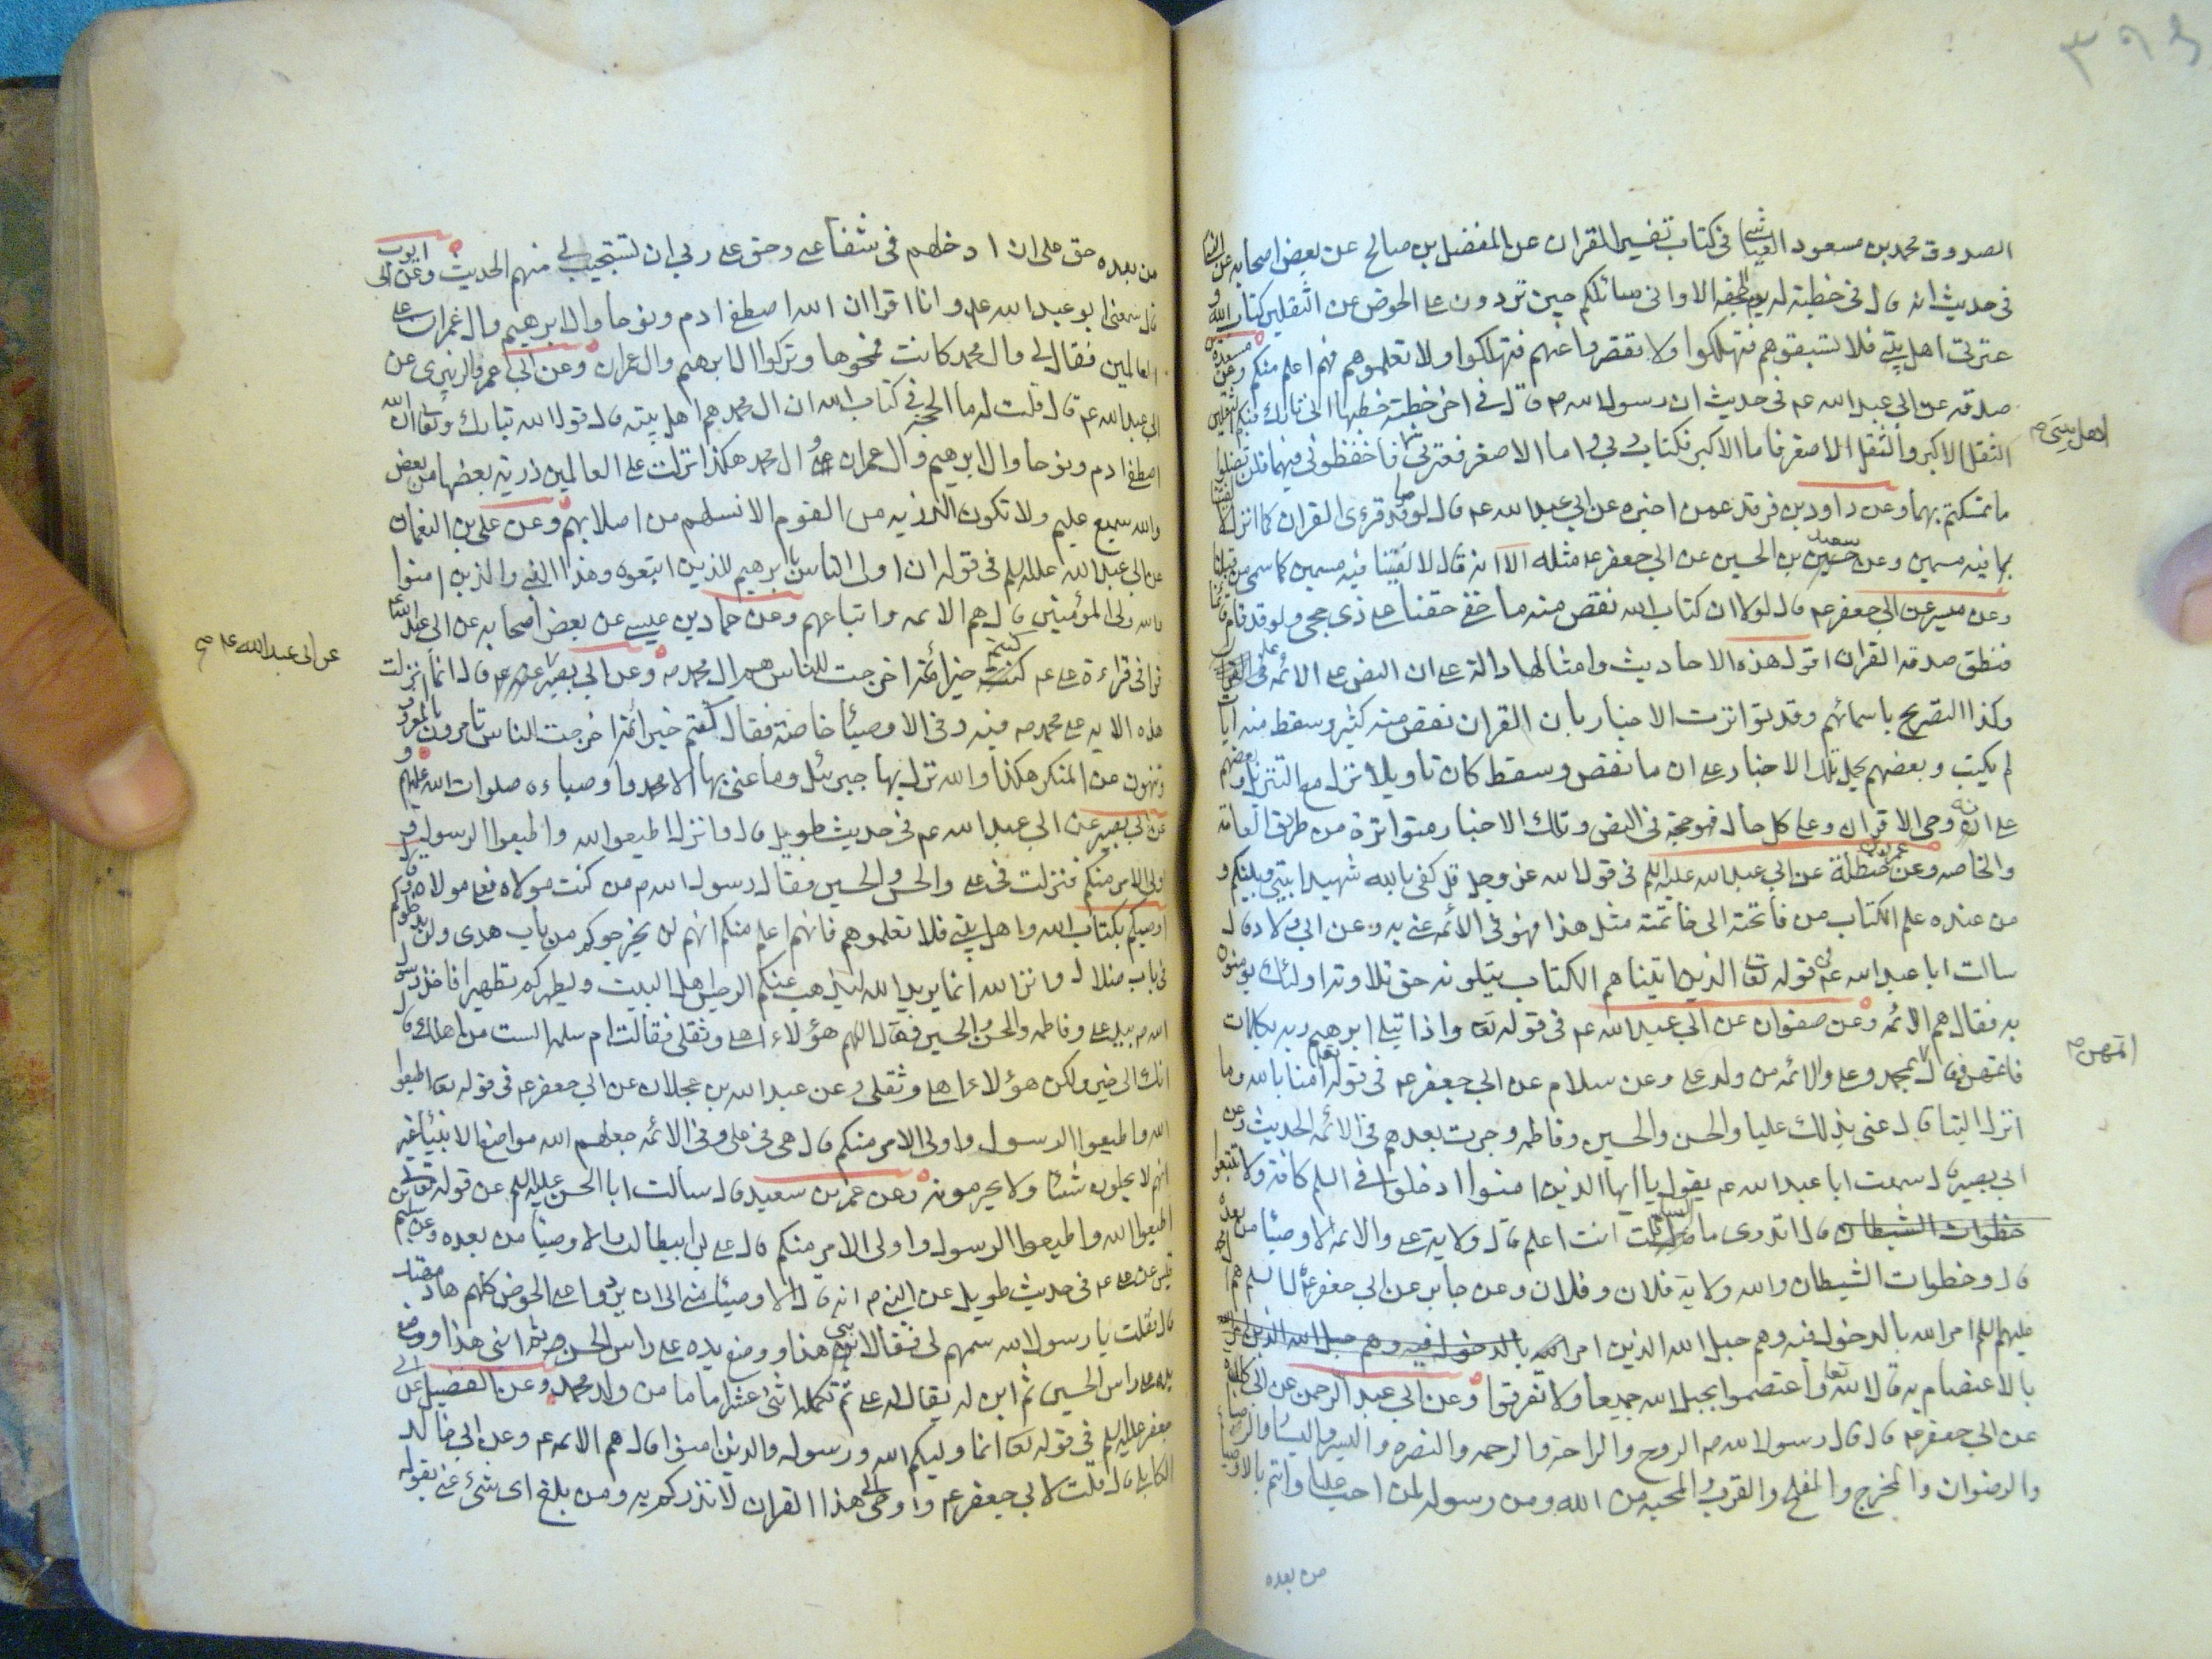 الصدوق محمد بن مسعود العياشي في كتاب تفسير القران عن المفضل بن صالح عن بعض اصحابه عن
في حديث انه قال في خطبة له يوم الجحفه الا واني سائلكم حين تردون على الحوض عن الثقلين كتاب الله و
عترتي اهل بيتي فلا تسبقوهم فتهلكوا ولا تقصروا عنهم فتهلكوا ولا تعلموهم فهم اعلم منكم وعن مسعدة بن
صدقه عن ابي عبد الله ع في حديث ان رسول الله ص قال في اخر خطبة خطبها اني تارك فيكم الثقلين
الثقل الاكبر والثقل الاصغر فاما الاكبر فكتاب ربي واما الاصغر فعترتي فاحفظوني فيهما فلن تضلوا
اهل بيتي صح
ما تمسكتم بهما وعن داود بن فرقد عمن اخبره عن ابي عبد الله ع قال لو قد قرئ القران كما انزل
فيه مسمين وعن سعيد بن الحسين عن ابي جعفر ع مثله الا انه قال لالفيتنا فيه مسمين كما سمى من قبلنا
وعن ميسر عن ابي جعفر ع قال لولا ان كتاب الله نقص منه ما خفي حقنا على ذي حجى ولو قد قام قائمنا
فنطق صدقه القران اقول هذه الاحاديث وامثالها دالة على ان النص على الائمه
وكذا التصريح باسمائهم وقد تواترت الاخبار بان القران نقص منه كثير وسقط منه ايات
لم يكتب وبعضهم يحمل تلك الاخبار على ان ما نقص وسقط كان تاويلا نزل مع التنزيل وبعضهم
على انه وحي الا قران وعلى كل حال فهو حجة في النص وتلك الاخبار متواترة من طريق العامة
والخاصه وعن عمر بن حنظلة عن ابي عبد الله عليه السلم في قول الله عز وجل قل كفى بالله شهيدا بيني وبينكم و
من عنده علم الكتاب من فاتحته الى خاتمته مثل هذا فهو في الائمه عني به وعن ابي ولاد قال
سالت ابا عبد الله ع عن قوله تعا الذين اتيناهم الكتاب يتلونه حق تلاوته اولئك يومنون
به فقال هم الائمه وعن صفوان عن ابي عبد الله ع في قوله تعا واذ ابتلى ابرهيم ربه بكلمات
فاتمهن قال بمحمد وعلي والائمه من ولد علي وعن سلام عن ابي جعفر ع في قوله تعا امنا بالله وما
اتمهن صح
انزل الينا قال عنى بذلك عليا والحسن والحسين وفاطمه وجرت بعدهم في الائمه الحديث وعن
ابي بصير قال سمعت ابا عبد الله ع يقول يا ايها الذين امنوا ادخلوا في السلم كافة ولا تتبعوا
خطوات الشيطان قال اتدري ما السلم قلت انت اعلم قال ولاية علي والائمه الاوصيا من بعده
قال وخطوات الشيطان والله ولاية فلان وفلان وعن جابر عن ابي جعفر ع قال ال محمد هم
عليهم السلم امر الله بالدخول فيه وهم حبل الله الذين امر الله بالدخول فيه وهم حبل الله الذين امر
بالاعتصام به قال الله تعا واعتصموا بحبل الله جميعا ولا تفرقوا وعن ابي عبد الرحمن عن ابي كلدة
عن ابي جعفر ع قال قال رسول الله ص الروح والراحة والرحمه والنصره واليسر واليسار والرضا
والرضوان والمخرج والفلج والقرب والمحبه من الله ومن رسوله لمن احب عليا وائتم بالاوصيا
من بعده
من بعده حق علي ان ادخلهم في شفاعتي وحق على ربي ان يستجيب لي فيهم الحديث وعن ابي ايوب
قال سمعني ابو عبد الله ع وانا اقرا ان الله اصطفى ادم ونوحا وال ابرهيم وال عمران على
العالمين فقال لي وال محمد كانت فمحوها وتركوا ال ابرهيم وال عمران وعن ابي عمرو الزبيري عن
ابي عبد الله ع قال قلت له ما الحجة في كتاب الله ان ال محمد هم اهل بيته قال قول الله تبارك وتعالى ان الله
اصطفى ادم ونوحا وال ابرهيم وال عمران وال محمد هكذا نزلت على العالمين ذرية بعضها من بعض
والله سميع عليم ولا تكون الذريه من القوم الا نسلهم من اصلابهم وعن علي بن النعمان
عن ابي عبد الله عليه السلم في قوله ان اولى الناس بابرهيم للذين اتبعوه وهذا النبي والذين امنوا
والله ولي المؤمنين قال هم الائمه واتباعهم وعن حماد بن عيسى عن بعض اصحابه عن ابي عبد الله ع
قال في قراءة علي ع كنتم خير ائمة اخرجت للناس هم ال محمد ص وعن ابي بصير قال انما انزلت
عن ابي عبد الله ع صح
هذه الايه على محمد ص فيه وفي الاوصيا خاصة فقال كنتم خير ائمة اخرجت للناس تامرون بالمعروف
وتنهون عن المنكر هكذا والله نزل بها جبرئل وما عنى بها الا محمدا واوصياءه صلوات الله عليهم و
عن ابي بصير عن ابي عبد الله ع في حديث طويل قال فانزل اطيعوا الله واطيعوا الرسول و
اولي الامر منكم فنزلت في علي والحسن والحسين وقال رسول الله ص من كنت مولاه فعلي مولاه وقال
اوصيكم بكتاب الله واهل بيتي فلا تعلموهم فانهم اعلم منكم انهم لن يخرجوكم من باب هدى ولن يدخلوكم
في باب ضلال وانزل الله انما يريد الله ليذهب عنكم الرجس اهل البيت ويطهركم تطهيرا فاخذ رسول
الله ص بيد علي وفاطمه والحسن والحسين فقال اللهم هؤلاء اهلي وثقلي فقالت ام سلمه الست من اهلك قال
انك الى خير ولكن هؤلاء اهلي وثقلي وعن عبد الله بن عجلان عن ابي جعفر ع في قوله تعا اطيعوا
الله واطيعوا الرسول واولي الامر منكم قال هي في علي وفي الائمه جعلهم الله مواضع الانبيا غير
انهم لا يحلون شيئا ولا يحرمونه وعن عمر بن سعيد قال سالت ابا الحسن عليه السلم عن قوله تعالى
اطيعوا الله واطيعوا الرسول واولي الامر منكم قال علي بن ابيطالب والاوصيا من بعده وعن سليم بن
قيس عن علي ع في حديث طويل عن النبي ص انه قال الاوصيا مني الى ان يردوا على الحوض كلهم هاد مهتد
قال فقلت يا رسول الله سمهم لي فقال ابني هذا ووضع يده على راس الحسن ثم ابني هذا ووضع
يده على راس الحسين ثم ابن له يقال له علي ثم تكمله اثنى عشر اماما من ولد محمد وعن الفضيل عن ابي
جعفر عليه السلم في قوله تعا انما وليكم الله ورسوله والذين امنوا قال هم الائمه ع وعن ابي خالد
الكابلي قال قلت لابي جعفر ع واوحي الي هذا القران لانذركم به ومن بلغ اي شئ عنى بقوله